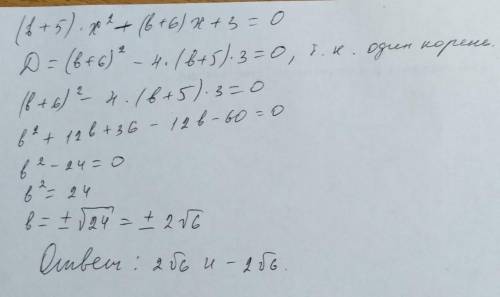 (в+5)·x² - (в+6)x+3=0
D=(в+6)² - 4·(в+5)·3=0, т.к. один корень.
(в+6)² - 4·(в+5)·3=0
в²+12в+36-12в-60=0
в²-24=0
в²=24
в=±√24=±2√6
Ответ: 2√6 и -2√6.